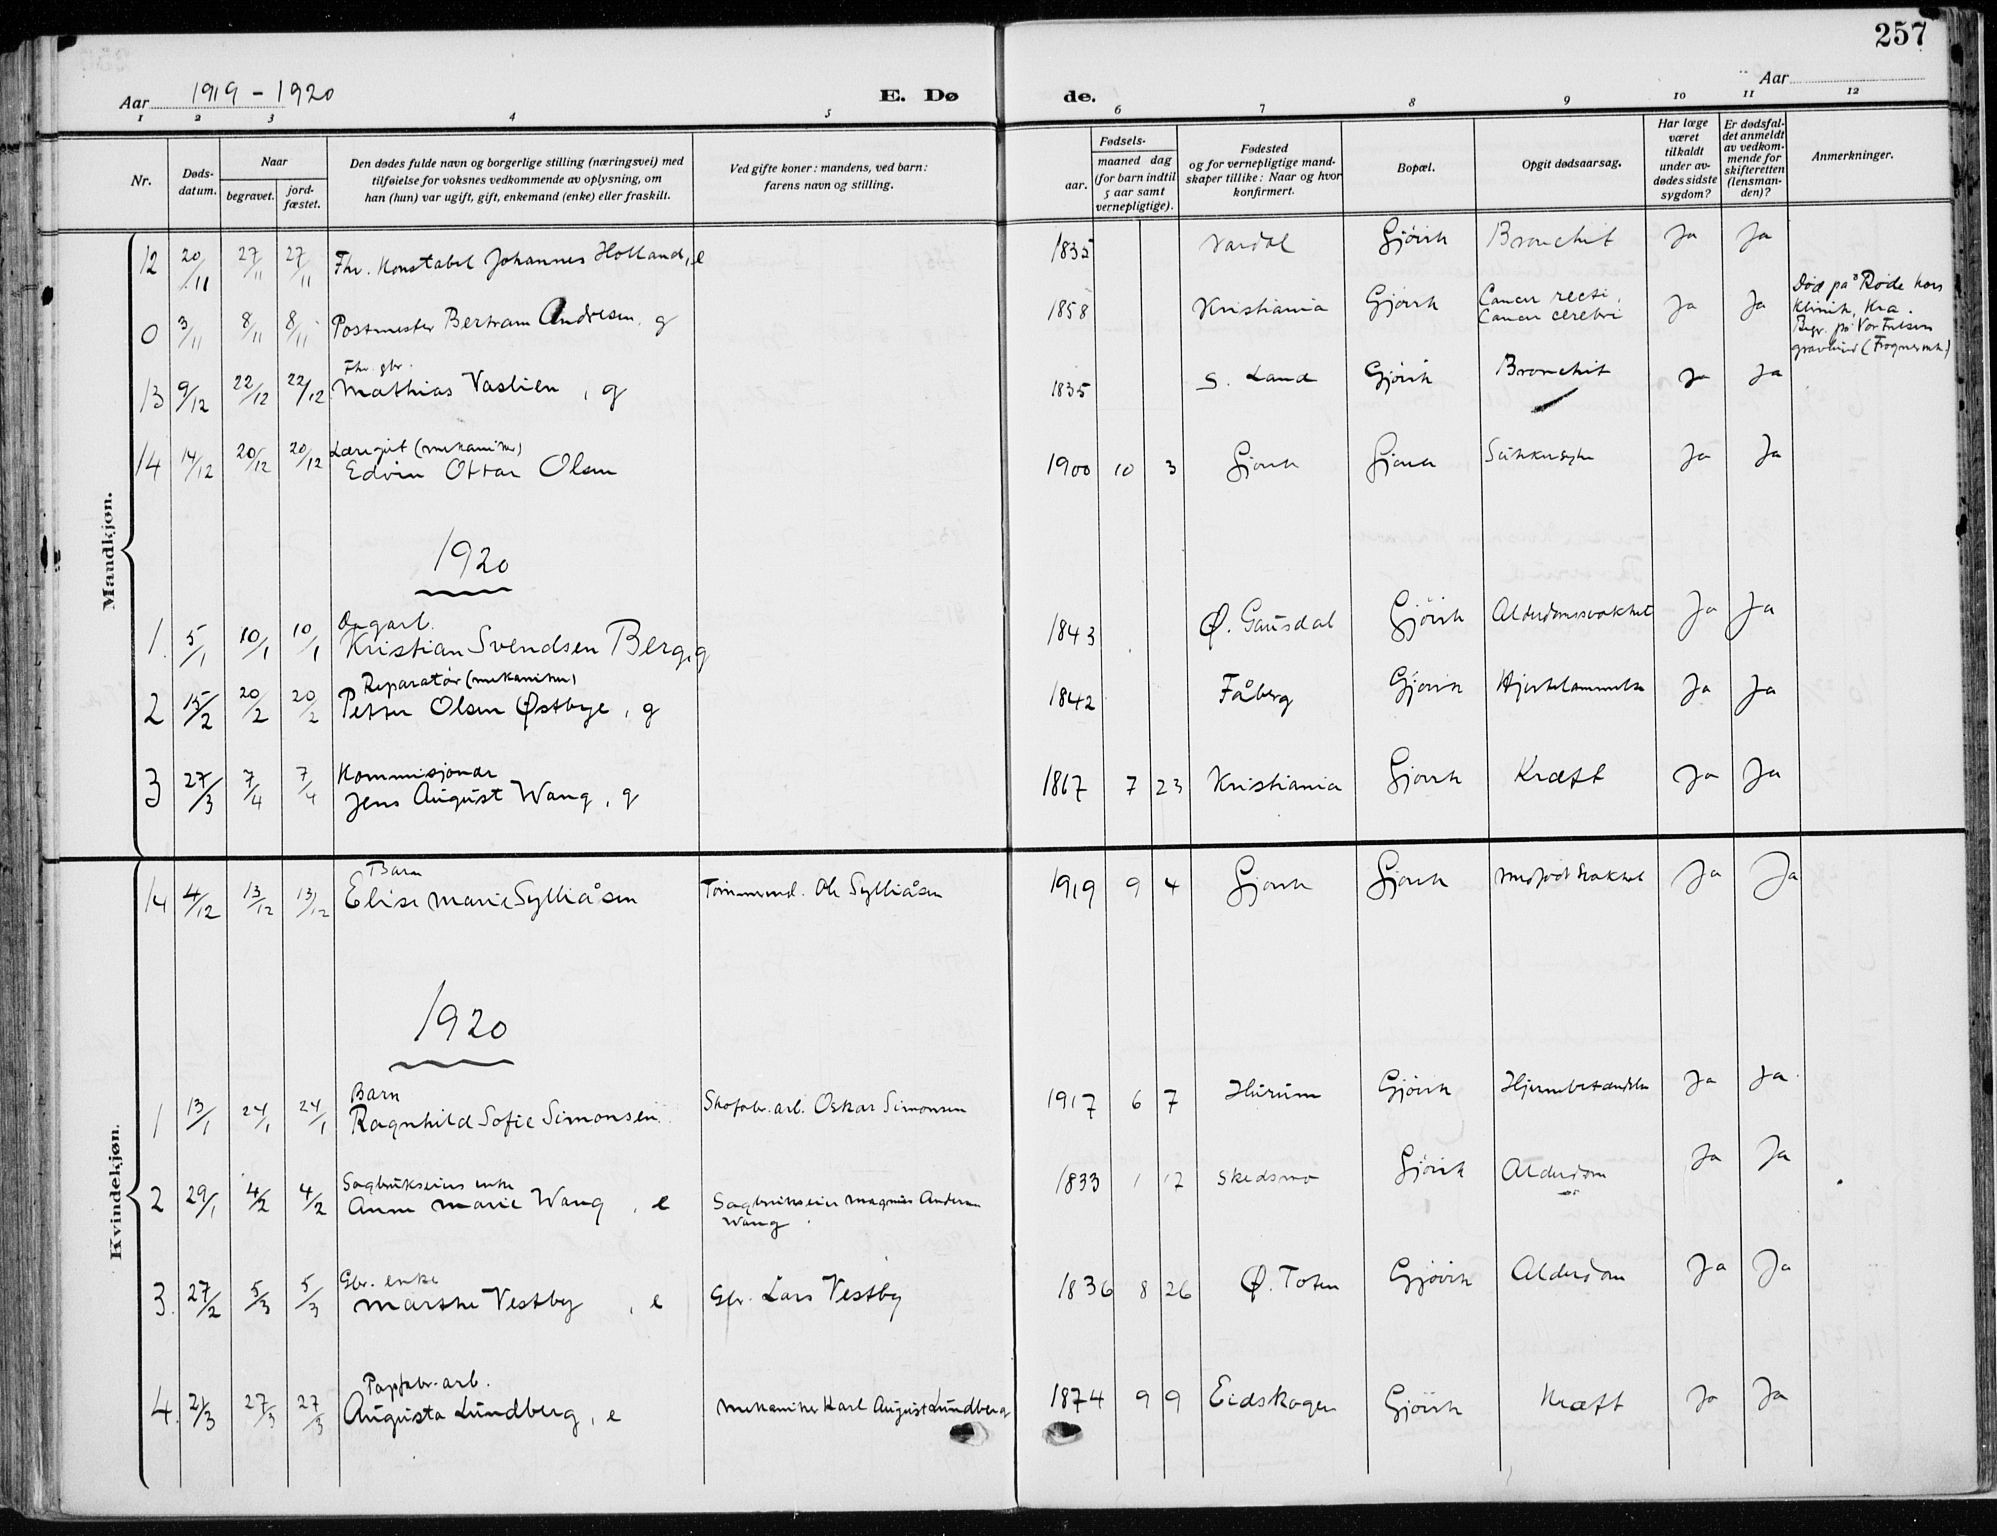 257
Aar 1919 - 1920
E. Døde.
Aar
1 2 3 4 5 6 7 8 9 10 11 12
Nr.
Døds-
datum.
Naar
begravet.
jord-
fæstet.
Den dødes fulde navn og borgerlige stilling (næringsvei) med
tilføielse for voksnes vedkommende av oplysning, om
han (hun) var ugift, gift, enkemand (enke) eller fraskilt.
Ved gifte koner: mandens, ved barn:
farens navn og stilling.
Fødsels-
aar.
maaned dag
(for barn indtil
5 aar samt
vernepligtige).
Fødested
og for vernepligtige mand-
skaper tillike: Naar og hvor
konfirmert.
Bopæl.
Opgit dødsaarsag.
Har læge
været
tilkaldt
under av-
dødes sidste
sygdom?
Er dødsfal-
det anmeldt
av vedkom-
mende for
skifteretten
(lensman-
den)?
Anmerkninger.
Mandkjøn.
12 20/11 27/11 27/11 Fhv. Konstabel Johannes Holland, e 1835 Vardal Gjøvik Bronchit Ja Ja
0 3/11 8/11 8/11 Postmester Bertram Andresen, g 1858 Kristiania Gjøvik Cancer recti, Cancer cerebri Ja Ja
Død på Røde kors
Klinik, Kra.
Begr. på Vor Frelsers
gravlund
Fhv. gbr.
13 9/12 22/12 22/12 Mathias Vaslien, g 1835 S. Land Gjøvik Bronchit Ja Ja
Læregut (mekaniker)
14 14/12 20/12 20/12 Edvin Ottar Olsen 1900 10 3 Gjøvik Gjøvik Sukkersyke Ja Ja
1920
1. 5/1 10/1 10/1 Kristian Svendsen Berg, g 1843 Ø. Gausdal Gjøvik Alderdomssvakhet Ja Ja
Reparatør (mekaniker)
2 15/2 20/2 20/2 Petter Olsen Østbye, g 1842 Fåberg Gjøvik Hjertelammelse Ja Ja
Kommisjonær
3 27/3 7/4 7/4 Jens August Wang, g 1867 7 23 Kristiania Gjøvik Kræft Ja Ja
Kvindekjøn.
Barn
14 4/12 13/12 13/12 Elise Marie Sylliåsen Tømmermd. Ole Sylliåsen 1919 9 4 Gjøvik Gjøvik Medfødt svakhet Ja Ja
1920
Barn
1 13/1 24/1 24/1 Ragnhild Sofie Simonsen Skofabr.arb. Oskar Simonsen 1917 6 7 Hurum Gjøvik Hjernebetændelse Ja Ja
Sagbrukseiers enke
2 29/1 4/2 4/2 Anne Marie Wang, e Sagbrukseier Magnus Andersen Wang 1833 1 17 Skedsmo Gjøvik Alderdom Ja Ja
Gbr. enke
3. 27/2 5/3 5/3 Marthe Vestby, e Gbr. Lars Vestby 1836 8 26 Ø. Toten Gjøvik Alderdom Ja Ja
Papfabr.arb.
4. 21/3 27/3 27/3 Augusta Lundberg, e Mekaniker Karl August Lundberg 1874 9 9 Eidskogen Gjøvik Kræft Ja Ja